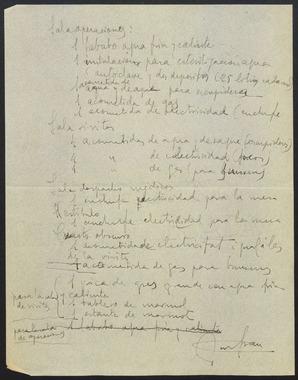 Sala operaciones:
1 lababo agua fria y caliente
1 instalacion para esterilizacion agua
autoclave y dos depositos (25 litros cada uno)
1 acometida de
agua y desague para escupidera
1 acometida de gas
1 acometida de electricidad (enchufe
Sala visitas
1 acometidas de agua y desague (escupidera)
1 " " de electricidad (focos)
1 " " de gas (para bunsen)
Sala despacho medicos
1 enchufe electricidad para la mesa
Vestibulo
1 enchufe electricidad para la mesa
Cuarto obscuro
1 acometida de electricitat
de la visita
1 acometida de gas para bunsen
1 pica de gres grande con agua fria
y caliente
para la sala de visitas
1 tablero de marmol
1 estante de marmol
para la sala de operaciones
1 lababo agua fria y caliente